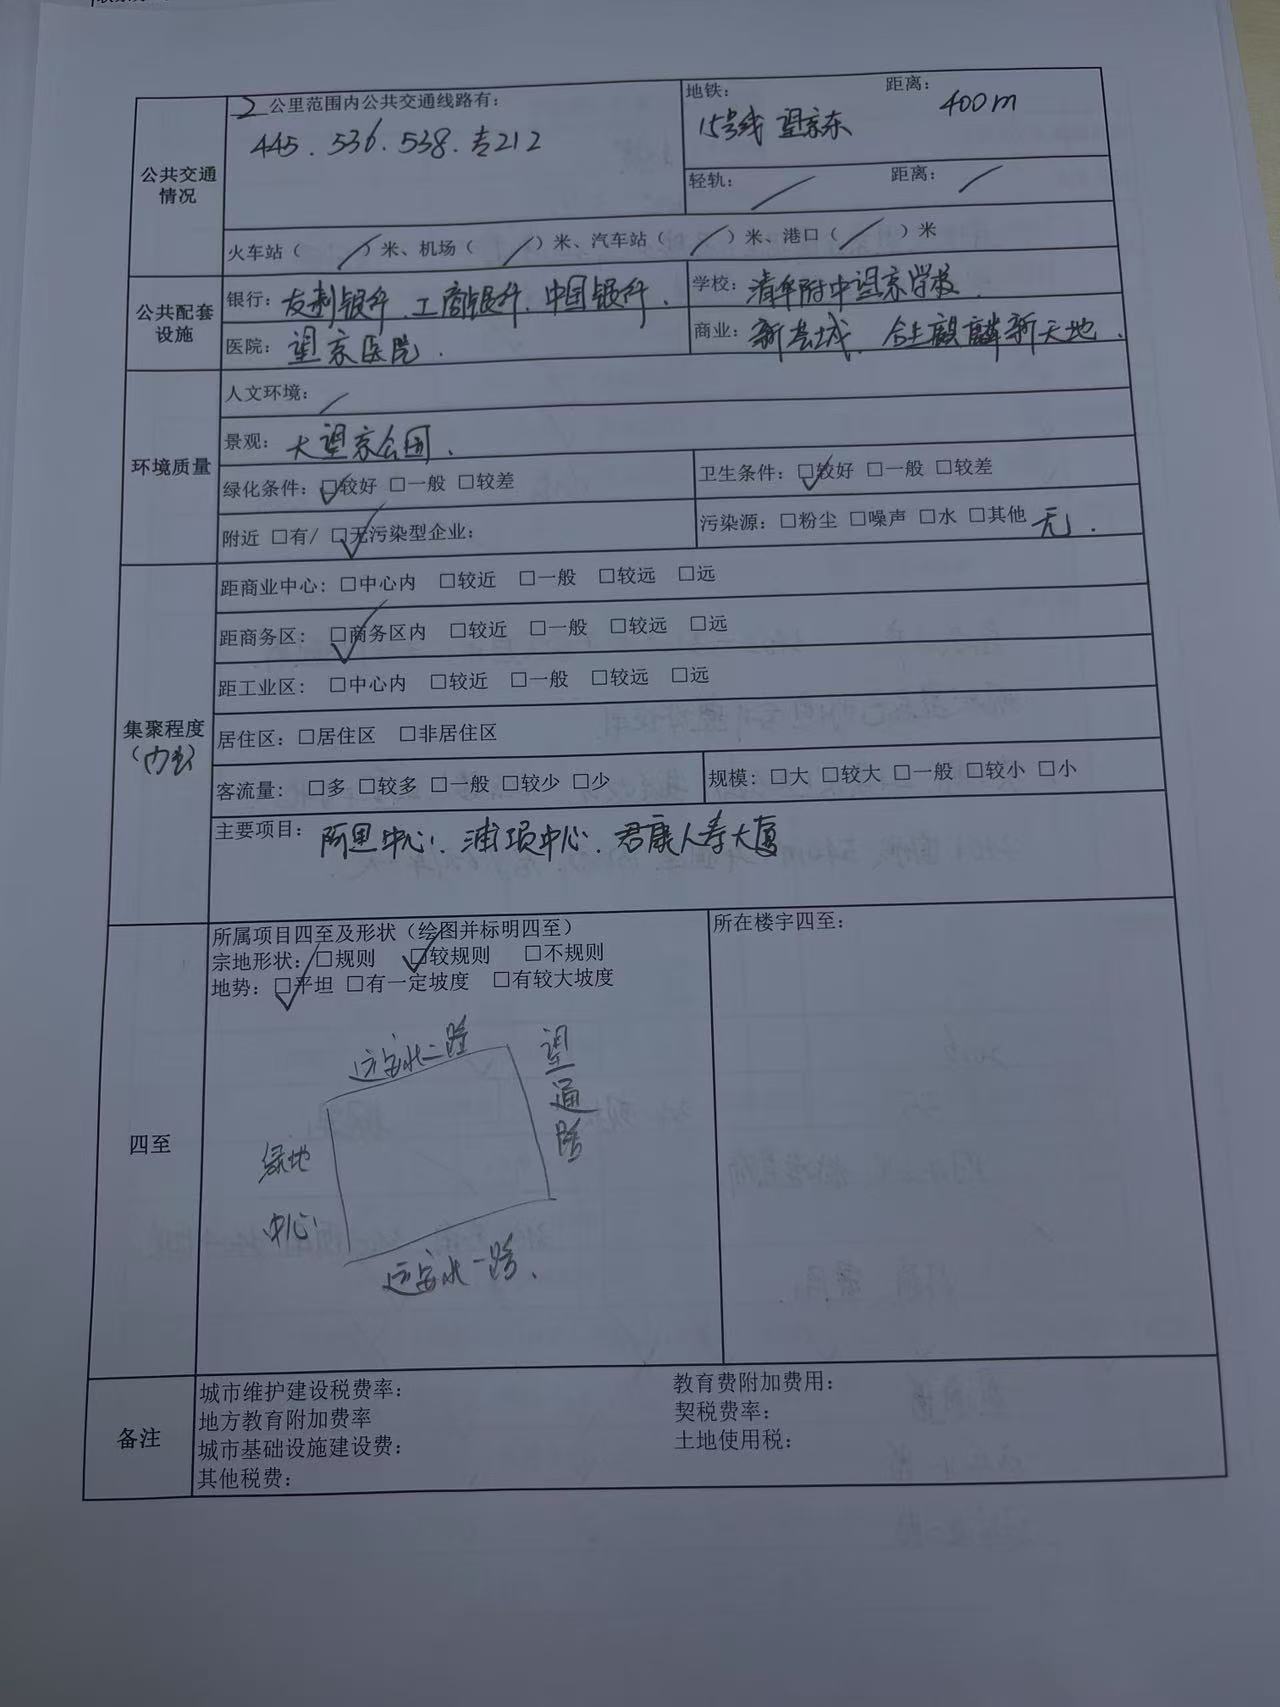 2 公里范围内公共交通线路有：
445.536.538.专212
地铁： 距离：
15号线 望京东 400m
公共交通情况
轻轨：／ 距离：／
火车站（／）米、机场（／）米、汽车站（／）米、港口（／）米
公共配套设施
银行：友利银行、工商银行、中国银行.
学校：清华附中望京学校.
医院：望京医院.
商业：新荟城、合生麒麟新天地.
环境质量
人文环境：／
景观：大望京公园.
绿化条件：☑较好 □一般 □较差
卫生条件：☑较好 □一般 □较差
附近 □有/ ☑无污染型企业：
污染源：□粉尘 □噪声 □水 □其他 无.
集聚程度
（办公）
距商业中心：□中心内 □较近 □一般 □较远 □远
距商务区：☑商务区内 □较近 □一般 □较远 □远
距工业区：□中心内 □较近 □一般 □较远 □远
居住区：□居住区 □非居住区
客流量：□多 □较多 □一般 □较少 □少
规模：□大 □较大 □一般 □较小 □小
主要项目：阿里中心、浦项中心、君康人寿大厦
四至
所属项目四至及形状（绘图并标明四至）
宗地形状：□规则 ☑较规则 □不规则
地势：☑平坦 □有一定坡度 □有较大坡度
所在楼宇四至：
宏泰北二路
望通路
绿地
中心
宏泰北一路.
备注
城市维护建设税费率： 教育费附加费用：
地方教育附加费率 契税费率：
城市基础设施建设费： 土地使用税：
其他税费：